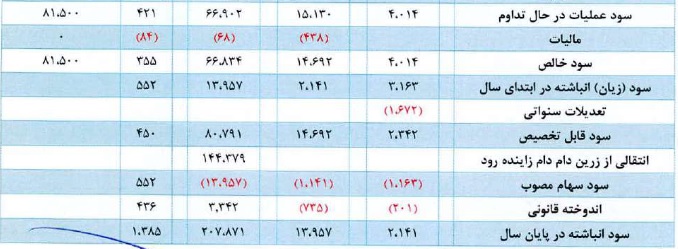 سود عملیات در حال تداوم ۴،۰۱۴ ۱۵،۱۳۰ ۶۶،۹۰۲ ۴۲۱ ۸۱،۵۰۰
مالیات (۴۳۸) (۶۸) (۸۴) ۰
سود خالص ۴،۰۱۴ ۱۴،۶۹۲ ۶۶،۸۳۴ ۳۵۵ ۸۱،۵۰۰
سود (زیان) انباشته در ابتدای سال ۳،۱۶۳ ۲،۱۴۱ ۱۳،۹۵۷ ۵۵۲
تعدیلات سنواتی (۱،۶۷۲)
سود قابل تخصیص ۲،۳۴۲ ۱۴،۶۹۲ ۸۰،۷۹۱ ۴۵۰
انتقالی از زرین دام دام زاینده رود ۱۴۴،۳۷۹
سود سهام مصوب (۱،۱۶۳) (۱،۱۴۱) (۱۳،۹۵۷) ۵۵۲
اندوخته قانونی (۲۰۱) (۷۳۵) ۳،۳۴۲ ۴۳۶
سود انباشته در پایان سال ۲،۱۴۱ ۱۳،۹۵۷ ۲۰۷،۸۷۱ ۱،۳۸۵